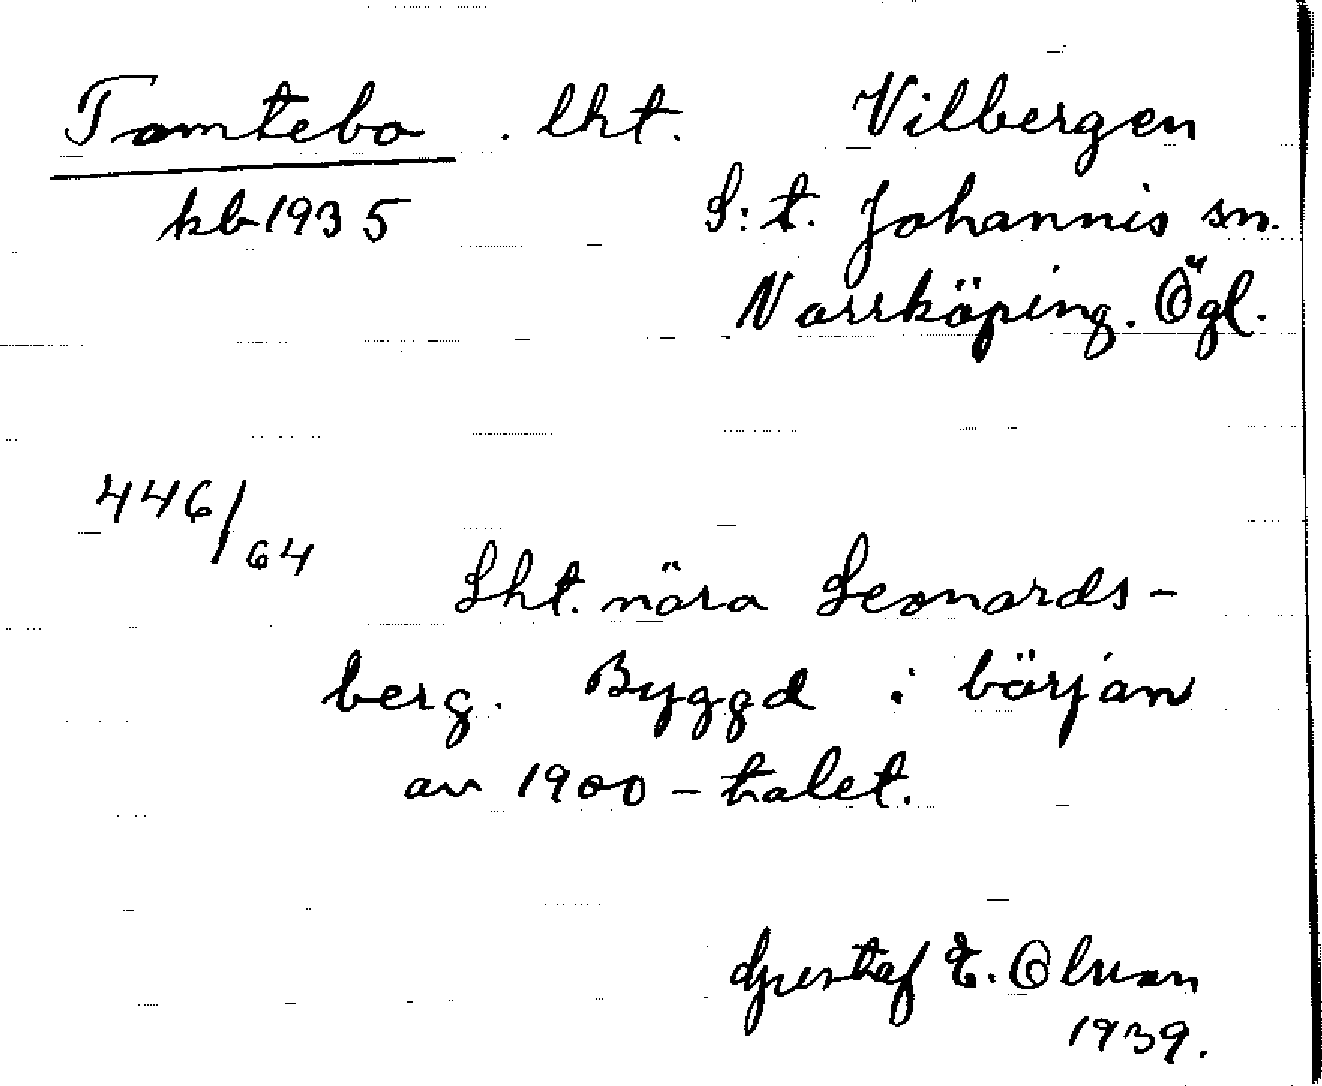 Tomtebo . lht. Vilbergen
kb 1935 S:t. Johannis sn.
Norrköping. Ögl.
446/64
Lht. nära Leonards-
berg. Byggd i början
av 1900-talet.
Gustaf E. Olsson
1939.